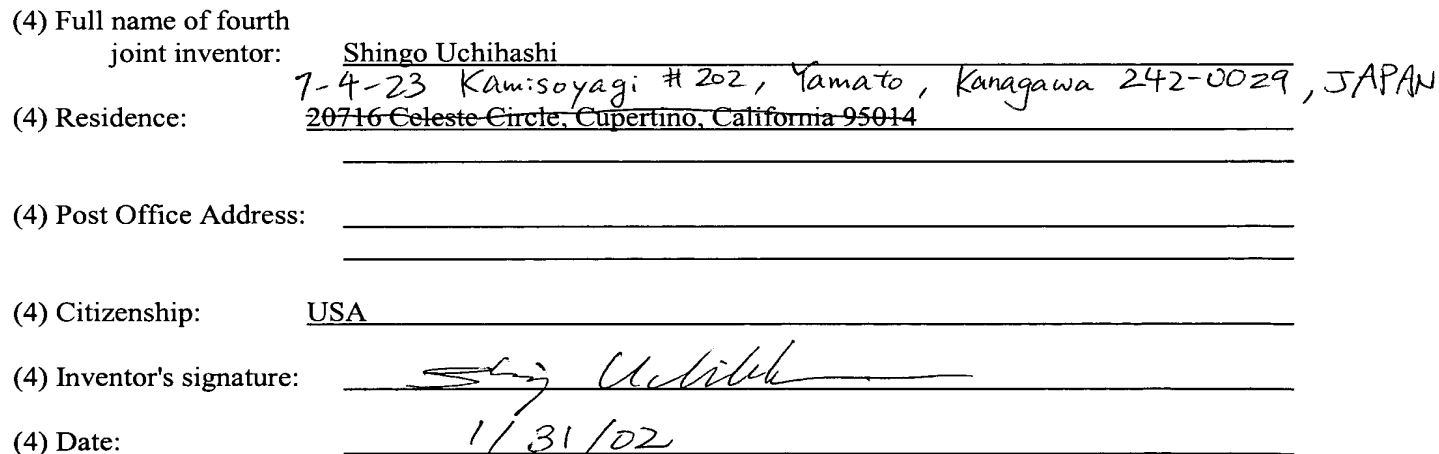 (4) Full name of fourth
joint inventor: Shingo Uchihashi
7-4-23 Kamisoyagi #202, Yamato, Kanagawa 242-0029, JAPAN
(4) Residence: 20716 Celeste Circle, Cupertino, California 95014
(4) Post Office Address:
(4) Citizenship: USA
(4) Inventor's signature:
(4) Date: 1/31/02